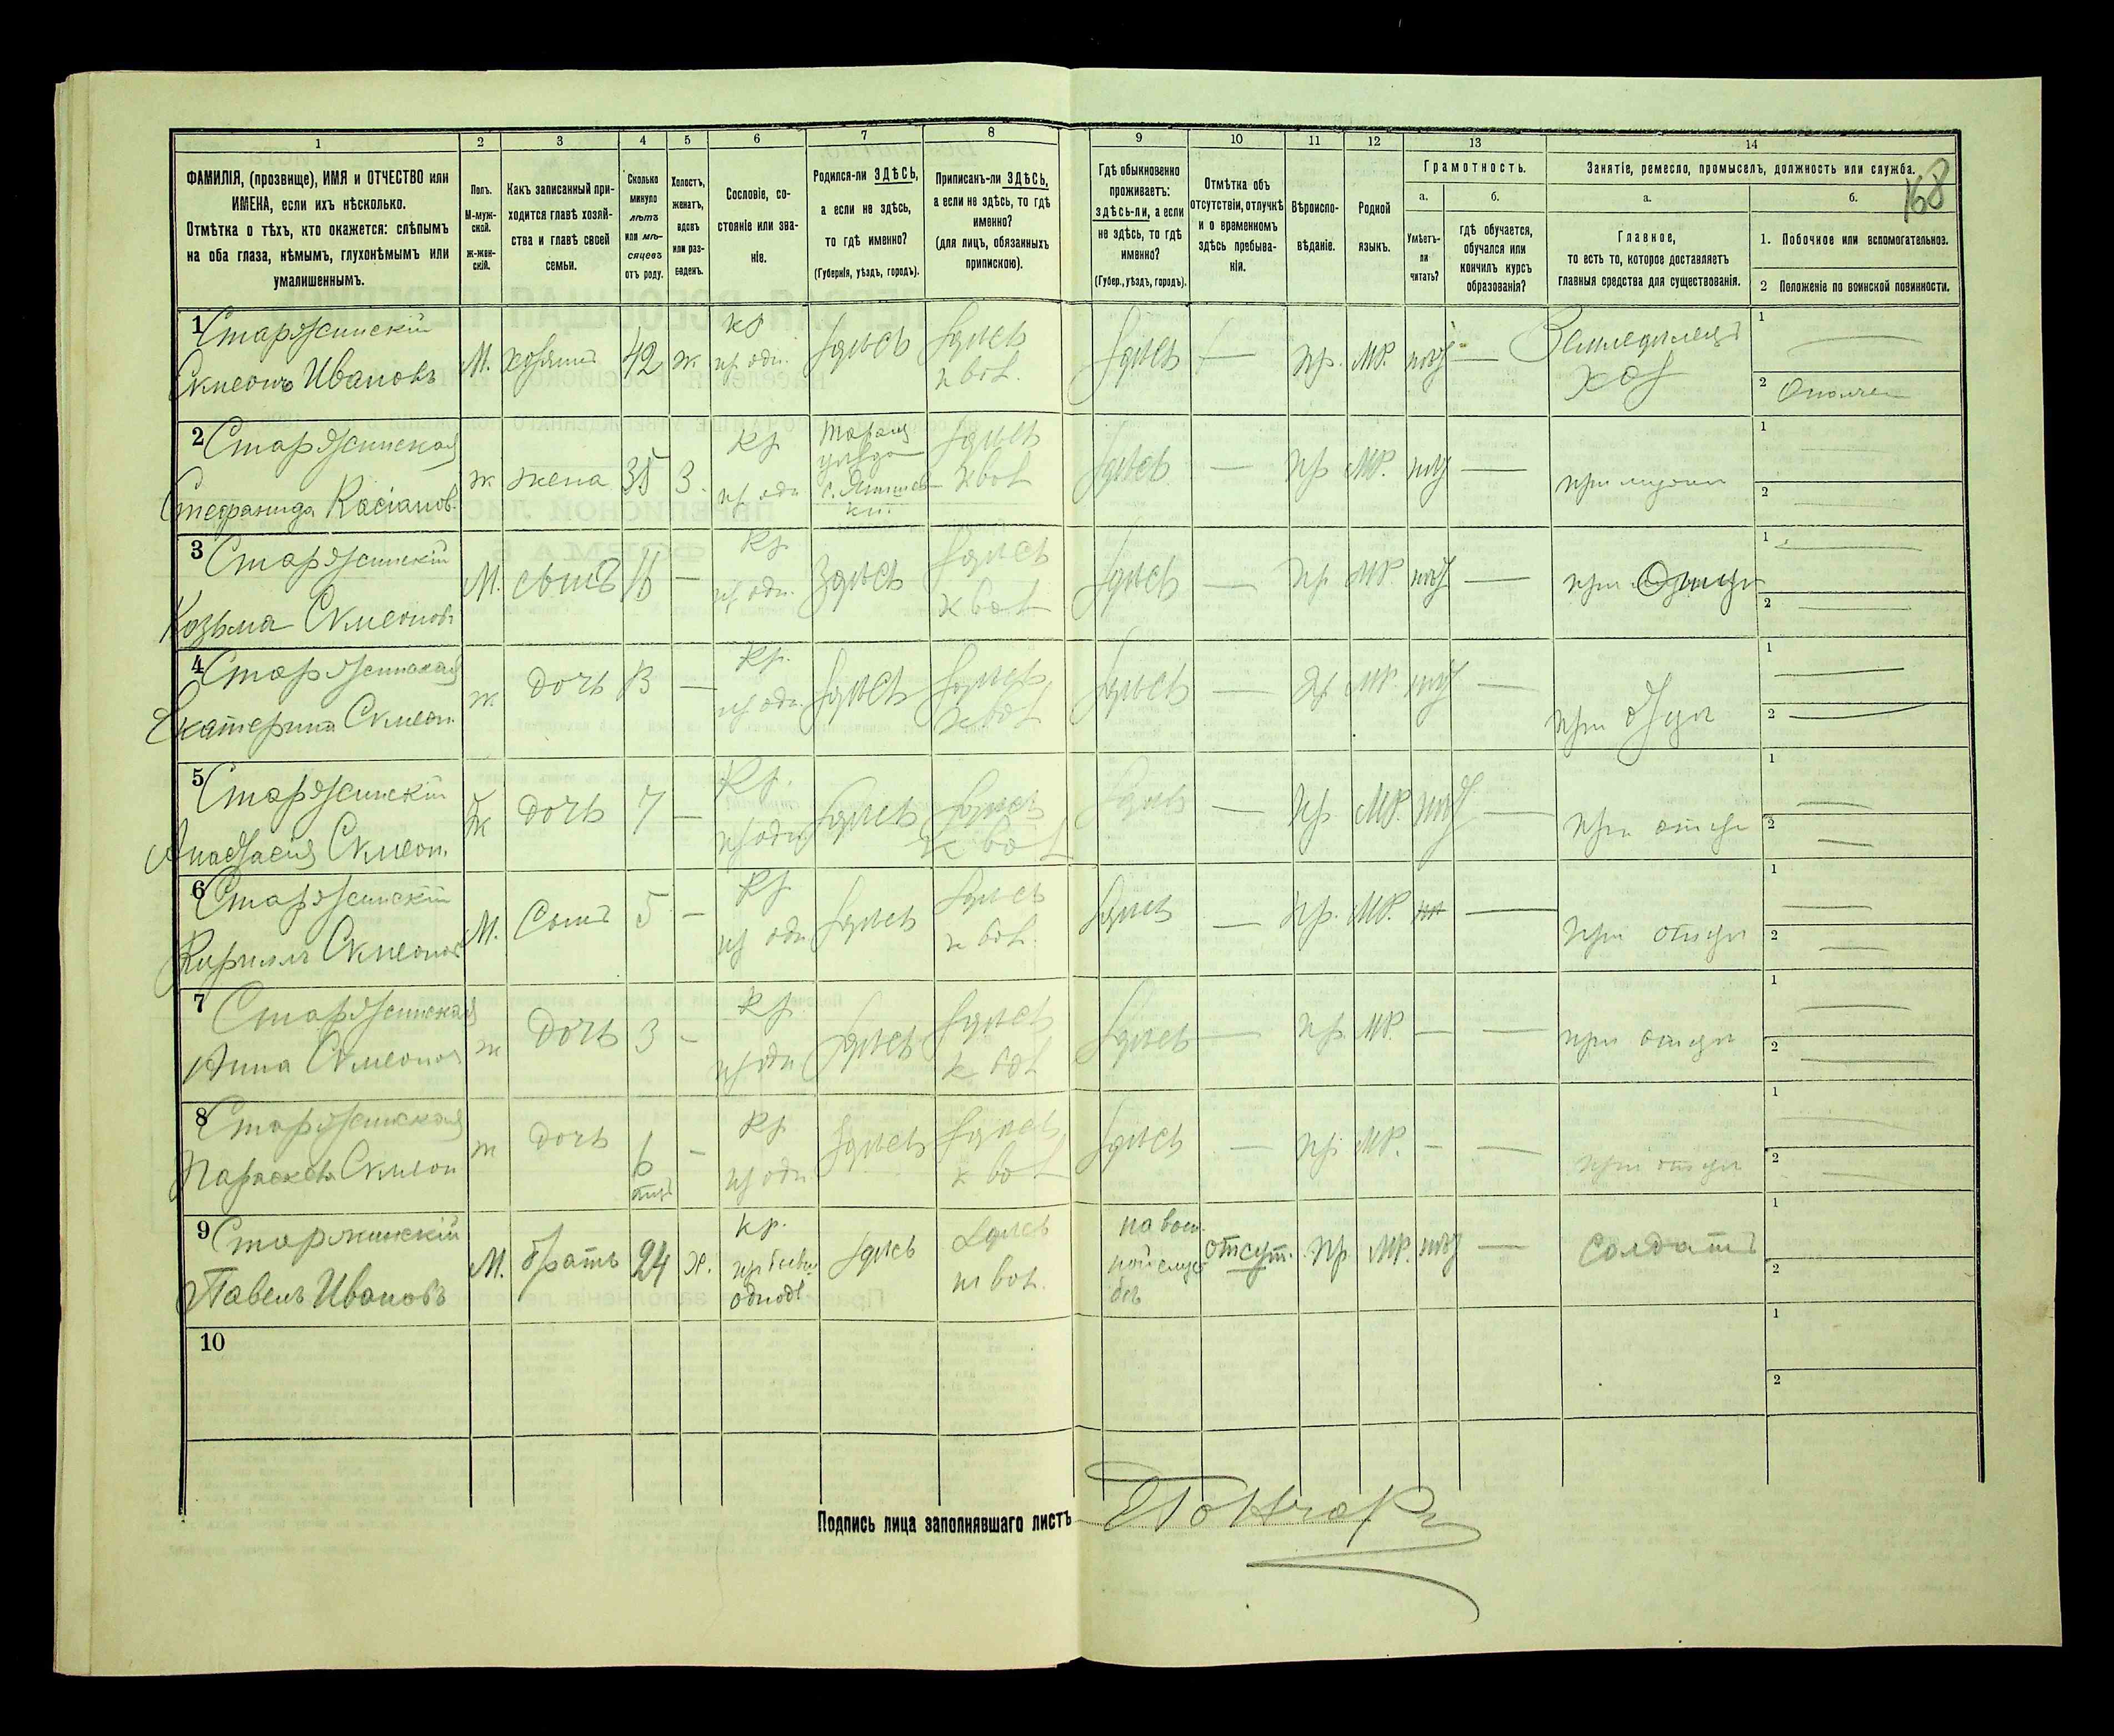 168
1
2
3
4
5
6
7
8
9
10
11
12
13
14
ФАМИЛІЯ, (прозвище), ИМЯ и ОТЧЕСТВО или
ИМЕНА, если ихъ нѣсколько.
Отмѣтка о тѣхъ, кто окажется: слѣпымъ
на оба глаза, нѣмымъ, глухонѣмымъ или
умалишеннымъ.
Полъ.
М-муж-
ской.
ж-жен-
скій.
Какъ записанный при-
ходится главѣ хозяй-
ства и главѣ своей
семьи.
Сколько
минуло
лѣтъ
или мѣ-
сяцевъ
отъ роду.
Холостъ,
женатъ,
вдовъ
или раз-
веденъ.
Сословіе, со-
стояніе или зва-
ніе.
Родился-ли ЗДѢСЬ,
а если не здѣсь,
то гдѣ именно?
(Губернія, уѣздъ, городъ).
Приписанъ-ли ЗДѢСЬ,
а если не здѣсь, то гдѣ
именно?
(для лицъ, обязанныхъ
припискою).
Гдѣ обыкновенно
проживаетъ:
здѣсь-ли, а если
не здѣсь, то гдѣ
именно?
(Губер., уѣздъ, городъ).
Отмѣтка объ
отсутствіи, отлучкѣ
и о временномъ
здѣсь пребыва-
ніи.
Вѣроиспо-
вѣданіе.
Родной
языкъ.
Грамотность.
а.
Умѣетъ-
ли
читать?
б.
гдѣ обучается,
обучался или
кончилъ курсъ
образованія?
Занятіе, ремесло, промыселъ, должность или служба.
а.
Главное,
то есть то, которое доставляетъ
главныя средства для существованія.
б.
1. Побочное или вспомогательное.
2 Положеніе по воинской повинности.
1 Старжинскій
Симеонъ Ивановъ
М.
хозяинъ
42
ж
кр
здѣсь
здѣсь
здѣсь
—
пр.
МР.
—
Земледѣлецъ
хоз
1 —
2 Ополчен
2 Старжинская
Стефанида Касіанов.
ж
жена
35
З.
кр
здѣсь
здѣсь
—
пр
МР.
—
1
2
3 Старжинскій
Козьма Симеонов
М.
сынъ
—
кр
здѣсь
здѣсь
здѣсь
—
пр
МР.
—
при отцѣ
1 —
2 —
4 Старжинская
Екатерина Симеон.
ж
дочь
13
—
кр.
здѣсь
здѣсь
здѣсь
—
пр
МР.
—
при отцѣ
1 —
2 —
5 Старжинскій
Анастасія Симеон.
ж
дочь
7
—
кр.
здѣсь
здѣсь
здѣсь
—
пр
МР.
—
при отцѣ
1 —
2 —
6 Старжинскій
Кириллъ Симеонов
М.
Сынъ
5
—
кр
здѣсь
здѣсь
здѣсь
—
пр.
МР.
—
при отцѣ
1 —
2 —
7 Старжинская
Анна Симеонов
ж
дочь
3
—
кр
здѣсь
здѣсь
здѣсь
—
пр
МР.
—
—
при отцѣ
1 —
2 —
8 Старжинская
Параскева Симеон
ж
дочь
6
—
кр
здѣсь
здѣсь
здѣсь
—
пр
МР.
—
—
при отцѣ
1
2
9 Старжинскій
Павелъ Ивановъ
М.
братъ
24
х.
кр.
здѣсь
здѣсь
отсут.
пр
МР.
—
солдатъ
1
2
10
1
2
Подпись лица заполнявшаго листъ